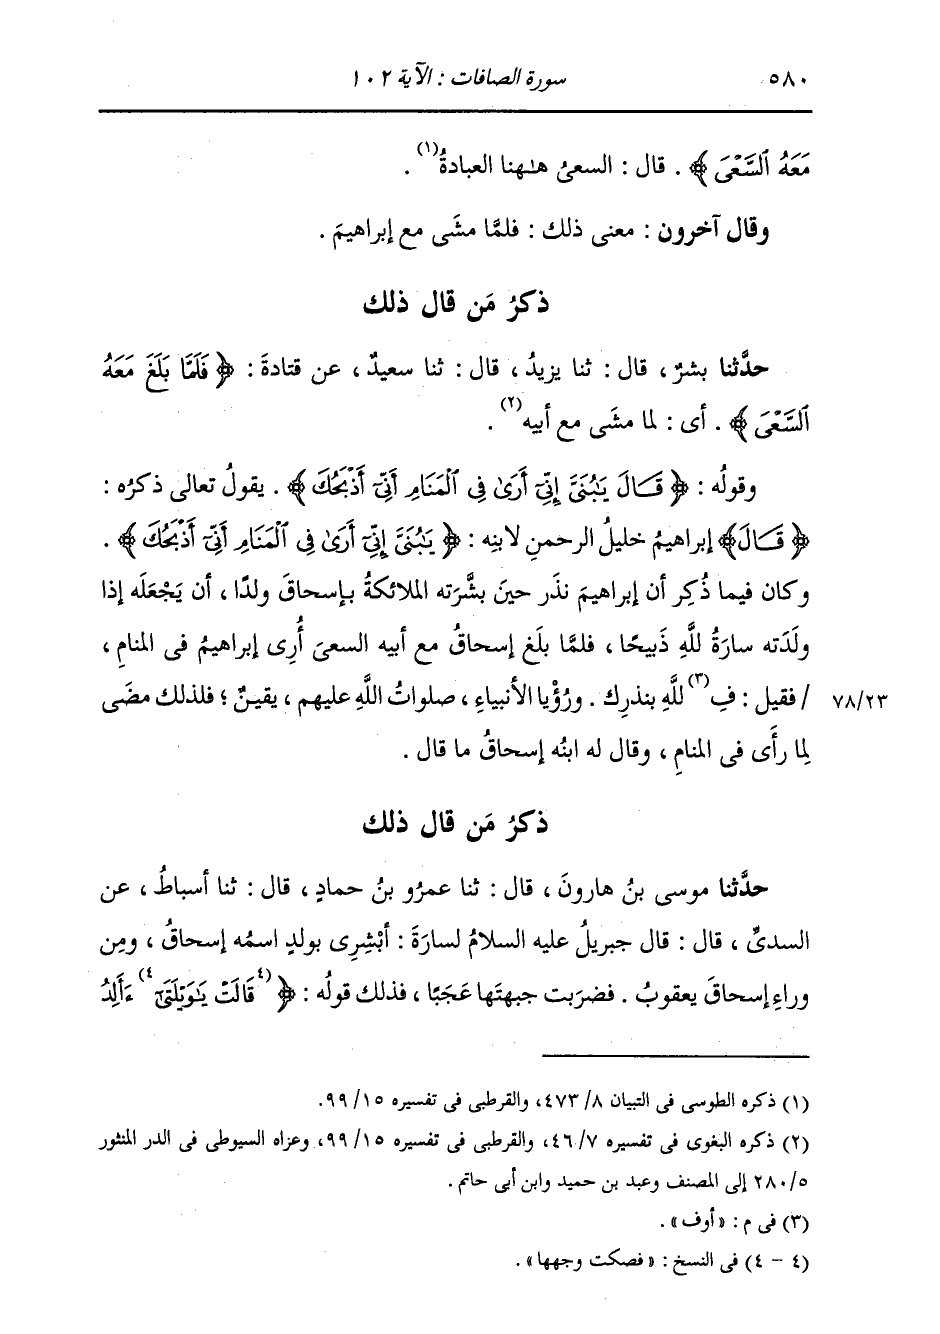 ٥٨٠ سورة الصافات : الآية ١٠٢
مَعَهُ ٱلسَّعْىَ ﴾ . قال : السعىُ هٰهنا العبادةُ(١) .
وقال آخرون : معنى ذلك : فلمَّا مشَى مع إبراهيمَ .
ذكرُ مَن قال ذلك
حدَّثنا بشرٌ ، قال : ثنا يزيدُ ، قال : ثنا سعيدٌ ، عن قتادةَ : ﴿ فَلَمَّا بَلَغَ مَعَهُ
ٱلسَّعْىَ ﴾ . أى : لما مشَى مع أبيه(٢) .
وقولُه : ﴿ قَالَ يَٰبُنَىَّ إِنِّىٓ أَرَىٰ فِى ٱلْمَنَامِ أَنِّىٓ أَذْبَحُكَ ﴾ . يقولُ تعالى ذكرُه :
﴿ قَالَ ﴾ إبراهيمُ خليلُ الرحمنِ لابنِه : ﴿ يَٰبُنَىَّ إِنِّىٓ أَرَىٰ فِى ٱلْمَنَامِ أَنِّىٓ أَذْبَحُكَ ﴾ .
وكان فيما ذُكِر أن إبراهيمَ نذَر حينَ بشَّرَته الملائكةُ بإسحاقَ ولدًا ، أن يَجْعَلَه إذا
ولَدَته سارَةُ للَّهِ ذَبيحًا ، فلمَّا بلَغ إسحاقُ مع أبيه السعىَ أُرِى إبراهيمُ فى المنامِ ،
٧٨/٢٣ / فقيل : فِ(٣) للَّهِ بنذرِك . ورُؤْيا الأنبياءِ ، صلواتُ اللَّهِ عليهم ، يقينٌ ؛ فلذلك مضَى
لِما رأَى فى المنامِ ، وقال له ابنُه إسحاقُ ما قال .
ذكرُ مَن قال ذلك
حدَّثنا موسى بنُ هارونَ ، قال : ثنا عمرُو بنُ حمادٍ ، قال : ثنا أسباطُ ، عن
السدىِّ ، قال : قال جبريلُ عليه السلامُ لسارَةَ : أبْشِرِى بولدٍ اسمُه إسحاقُ ، ومِن
وراءِ إسحاقَ يعقوبُ . فضرَبت جبهتَها عَجَبًا ، فذلك قولُه : ﴿ (٤قَالَتْ يَٰوَيْلَتَىٰٓ٤) ءَأَلِدُ
(١) ذكره الطوسى فى التبيان ٨/ ٤٧٣، والقرطبى فى تفسيره ١٥/ ٩٩.
(٢) ذكره البغوى فى تفسيره ٧/ ٤٦، والقرطبى فى تفسيره ١٥/ ٩٩، وعزاه السيوطى فى الدر المنثور
٥/ ٢٨٠ إلى المصنف وعبد بن حميد وابن أبى حاتم .
(٣) فى م : «أوف» .
(٤ - ٤) فى النسخ : «فصكت وجهها» .